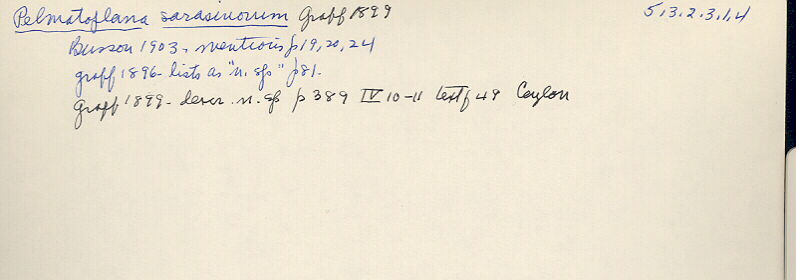 Pelmatoplana sarasinorum Graff 1899 5.3.2.3.1.4
Busson 1903 - mentions p 19, 20, 24
Graff 1896 - lists as "n. sp" p 81.
Graff 1899 - descr. n. sp p 389 IV 10-11 textf 49 Ceylon